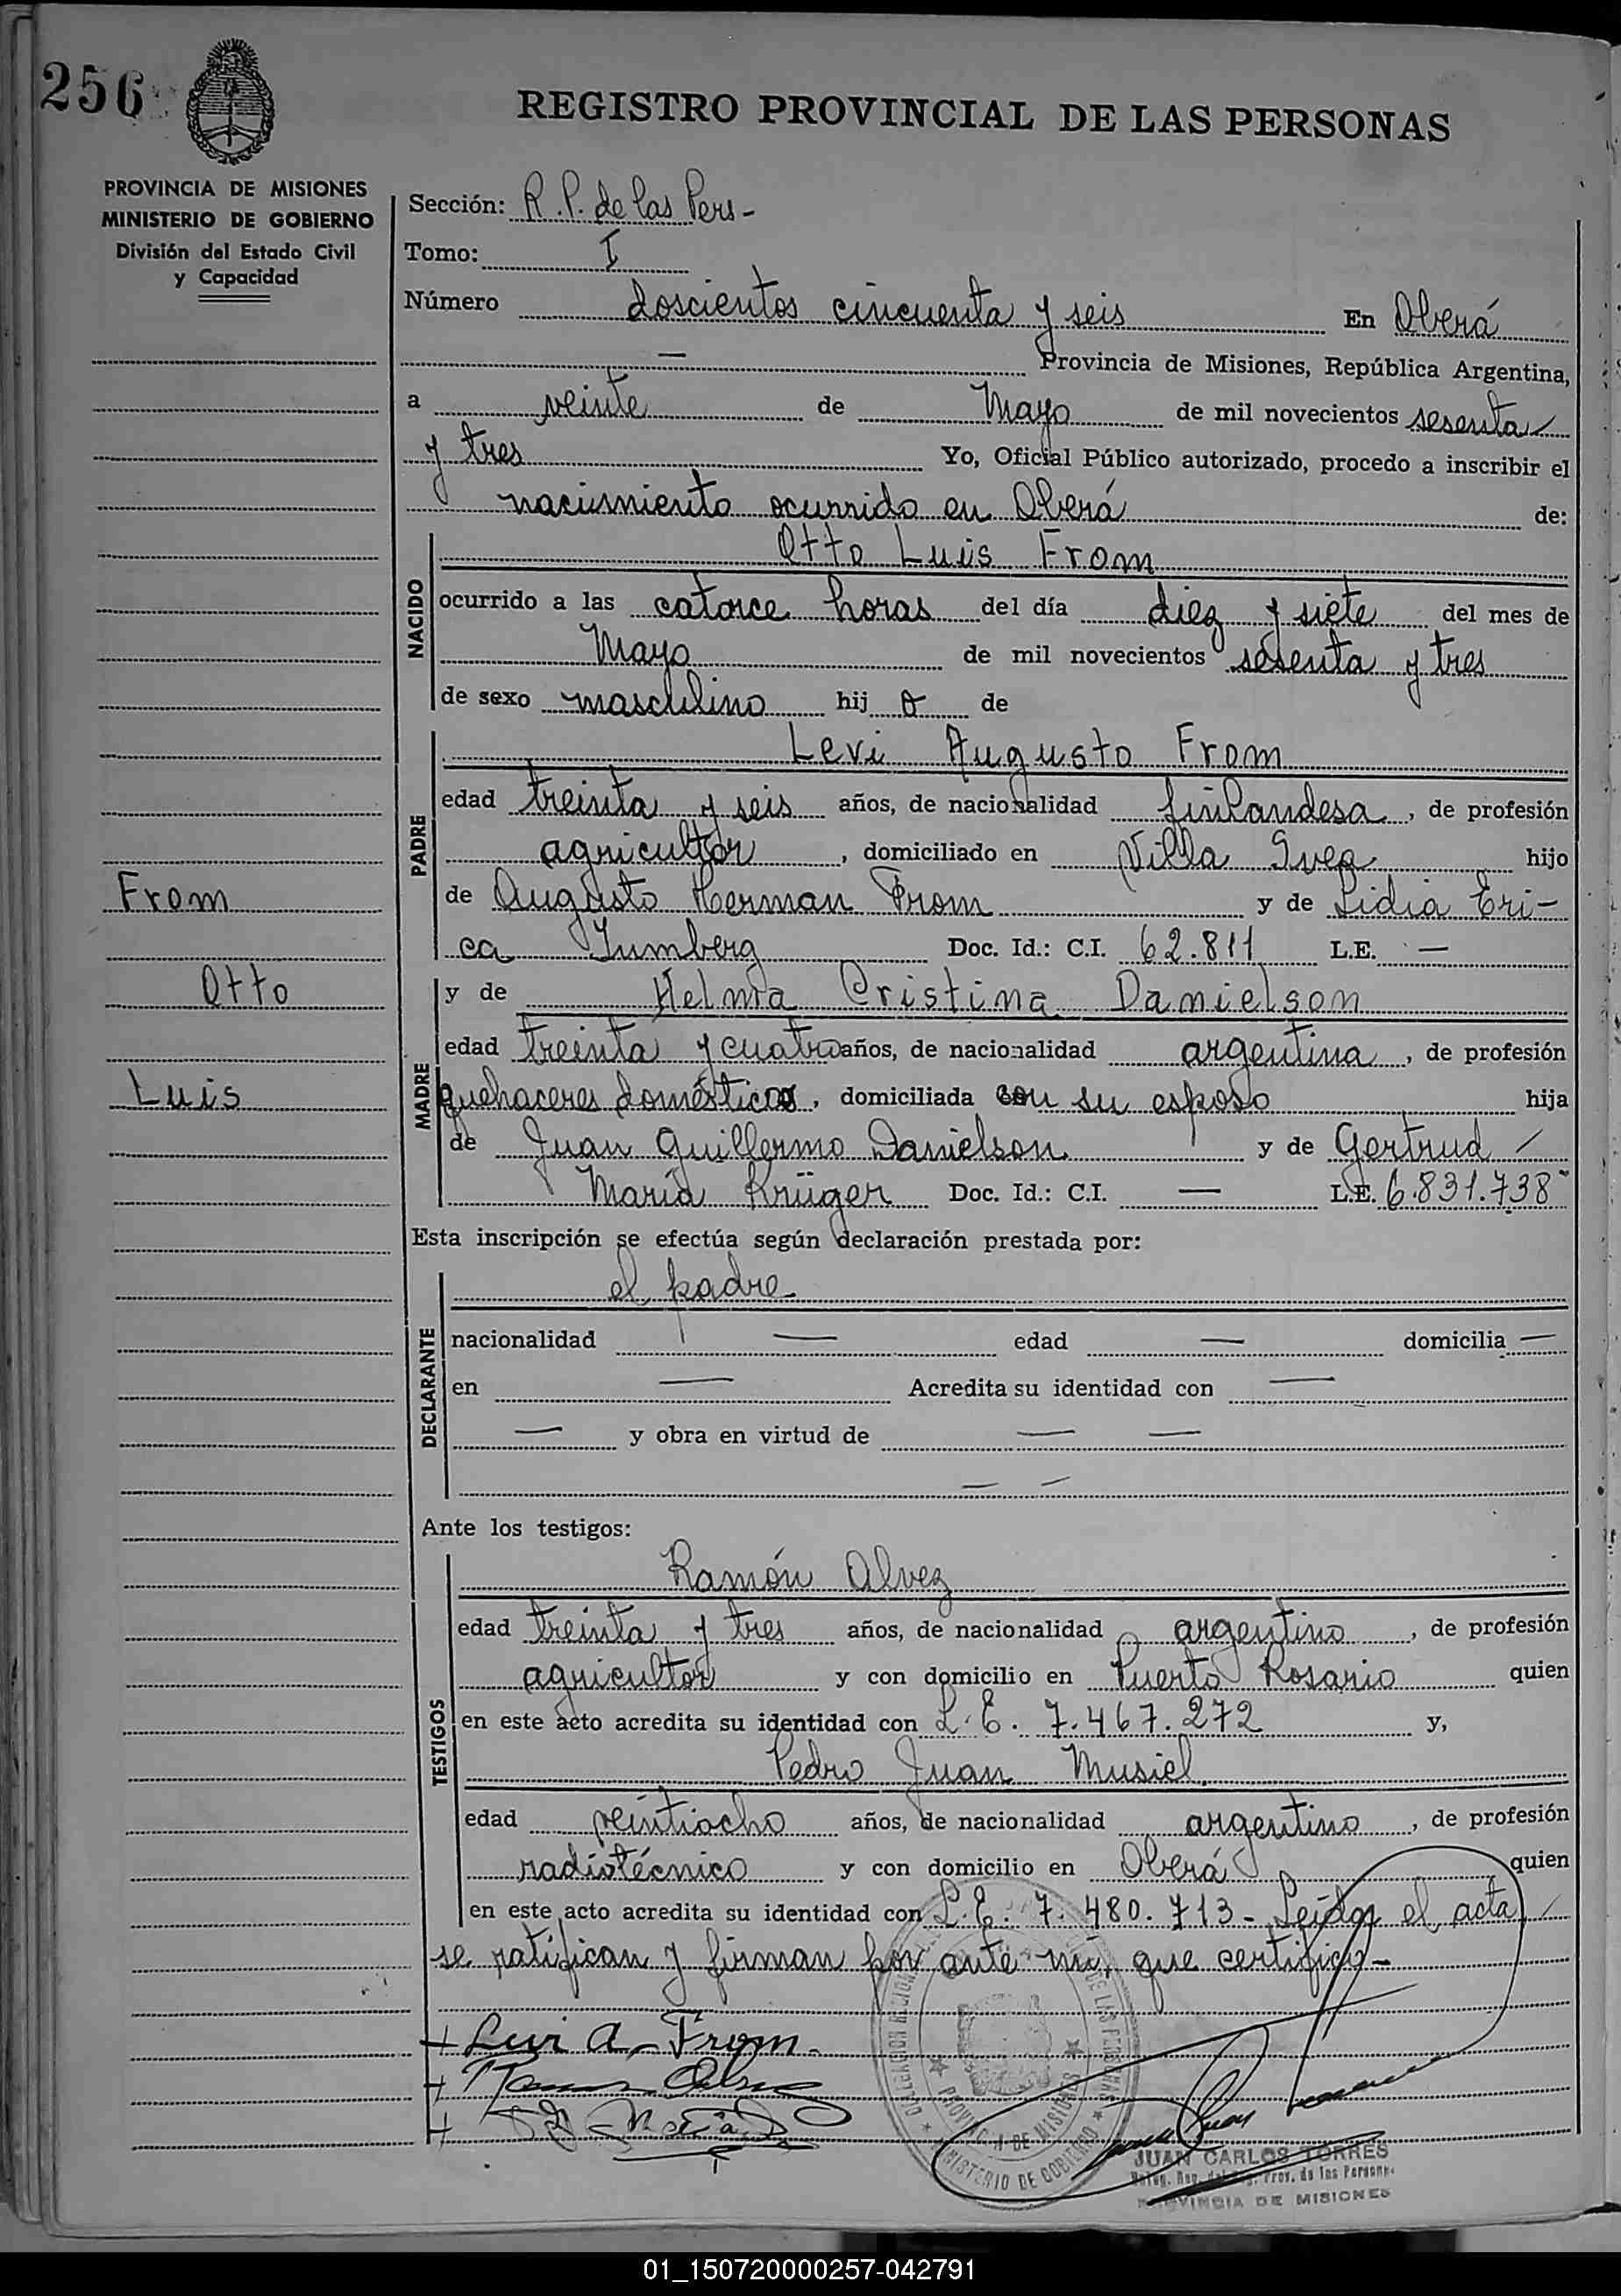 256
REGISTRO PROVINCIAL DE LAS PERSONAS
PROVINCIA DE MISIONES
MINISTERIO DE GOBIERNO
División del Estado Civil
y Capacidad
Sección: R. P. de las Pers-
Tomo: I
Número doscientos cincuenta y seis En Oberá
— Provincia de Misiones, República Argentina,
a veinte de Mayo de mil novecientos sesenta
y tres Yo, Oficial Público autorizado, procedo a inscribir el
nacimiento ocurrido en Oberá de:
NACIDO
Otto Luis From
ocurrido a las catorce horas del día diez y siete del mes de
Mayo de mil novecientos sesenta y tres
de sexo masculino hij o de
PADRE
Levi Augusto From
edad treinta y seis años, de nacionalidad finlandesa, de profesión
agricultor, domiciliado en Villa Svea hijo
de Augusto Herman From y de Lidia Eri-
ca Jumberg Doc. Id.: C.I. 62.811 L.E. —
From
Otto
Luis
MADRE
y de Helmia Cristina Danielson
edad treinta y cuatro años, de nacionalidad argentina, de profesión
quehaceres domésticos, domiciliada con su esposo hija
de Juan Guillermo Danielson y de Gertrud
María Krüger Doc. Id.: C.I. — L.E. 6.831.738
Esta inscripción se efectúa según declaración prestada por:
DECLARANTE
el padre
nacionalidad — edad — domicilia —
en — Acredita su identidad con —
— y obra en virtud de — —
— —
Ante los testigos:
TESTIGOS
Ramón Alvez
edad treinta y tres años, de nacionalidad argentino, de profesión
agricultor y con domicilio en Puerto Rosario quien
en este acto acredita su identidad con L.E. 7.467.272 y,
Pedro Juan Musiel
edad veintiocho años, de nacionalidad argentino, de profesión
radiotécnico y con domicilio en Oberá quien
en este acto acredita su identidad con L.E. 7.480.713- Leída el acta
se ratifican y firman por ante mí, que certifico-
+ Levi A. From
+
+
PROVINCIA DE MISIONES
MINISTERIO DE GOBIERNO
JUAN CARLOS TORRES
Prov. de las Personas
PROVINCIA DE MISIONES
01_150720000257-042791